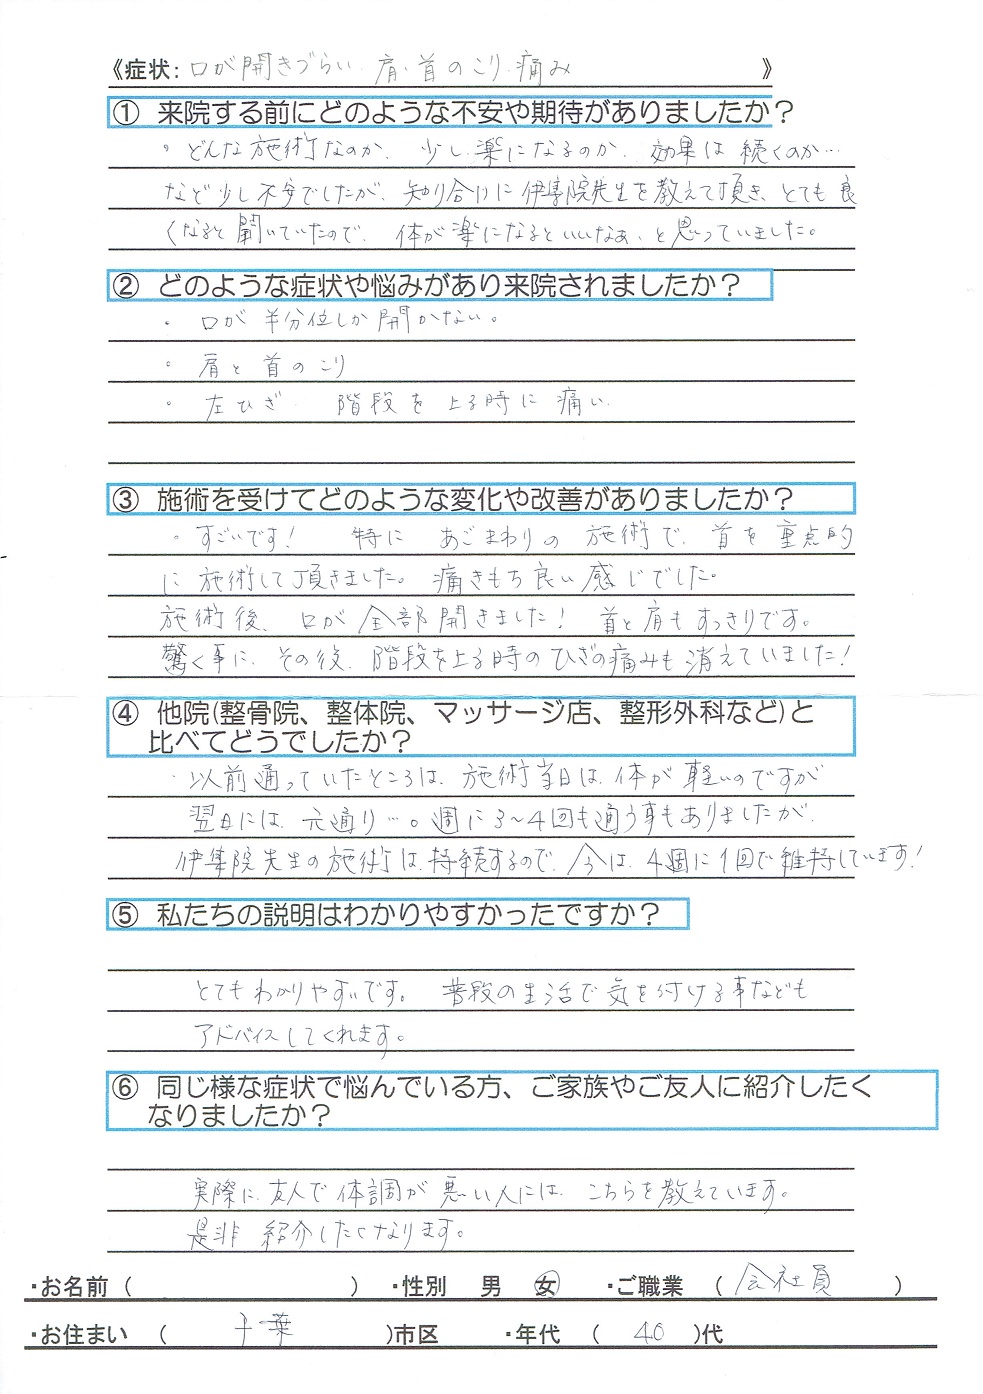 《症状: 口が開きづらい 肩・首のこり・痛み 》
① 来院する前にどのような不安や期待がありましたか？
・どんな施術なのか、少し楽になるのか、効果は続くのか…
など少し不安でしたが、知り合いに伊集院先生を教えて頂き、とても良
くなると聞いていたので、体が楽になるといいなぁ、と思っていました。
② どのような症状や悩みがあり来院されましたか？
・口が半分位しか開かない。
・肩と首のこり
・左ひざ 階段を上る時に痛い
③ 施術を受けてどのような変化や改善がありましたか？
・すごいです！ 特に あごまわりの施術で、首を重点的
に施術して頂きました。痛きもち良い感じでした。
施術後、口が全部開きました！ 首と肩もすっきりです。
驚く事に、その後、階段を上る時のひざの痛みも消えていました！
④ 他院(整骨院、整体院、マッサージ店、整形外科など)と
比べてどうでしたか？
・以前通っていたところは、施術当日は、体が軽いのですが
翌日には、元通り…。週に3〜4回も通う事もありましたが、
伊集院先生の施術は、持続するので、今は、4週に1回で維持しています！
⑤ 私たちの説明はわかりやすかったですか？
とてもわかりやすいです。普段の生活で気を付ける事なども
アドバイスしてくれます。
⑥ 同じ様な症状で悩んでいる方、ご家族やご友人に紹介したく
なりましたか？
実際に、友人で体調が悪い人には、こちらを教えています。
是非 紹介したくなります。
・お名前 ( ) ・性別 男 女 ・ご職業 ( 会社員 )
・お住まい ( 千葉 )市区 ・年代 ( 40 )代